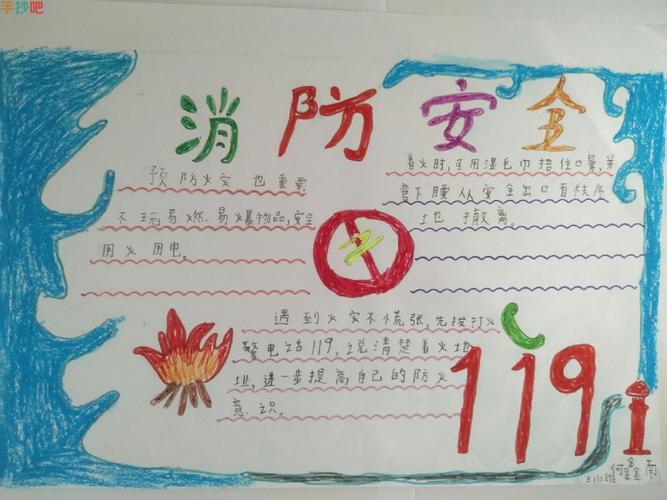 手抄吧
消防安全
预防火灾也重要
不玩易燃、易火暴物品,安全
用火用电。
着火时,可用湿毛巾捂住口巢,并
弯下腰从安全出口有秩序
地撤离。
遇到火灾不慌张,先拨打火
警电话119,说清楚着火地
址,进一步提高自己的防火
意识。
119
何鑫南